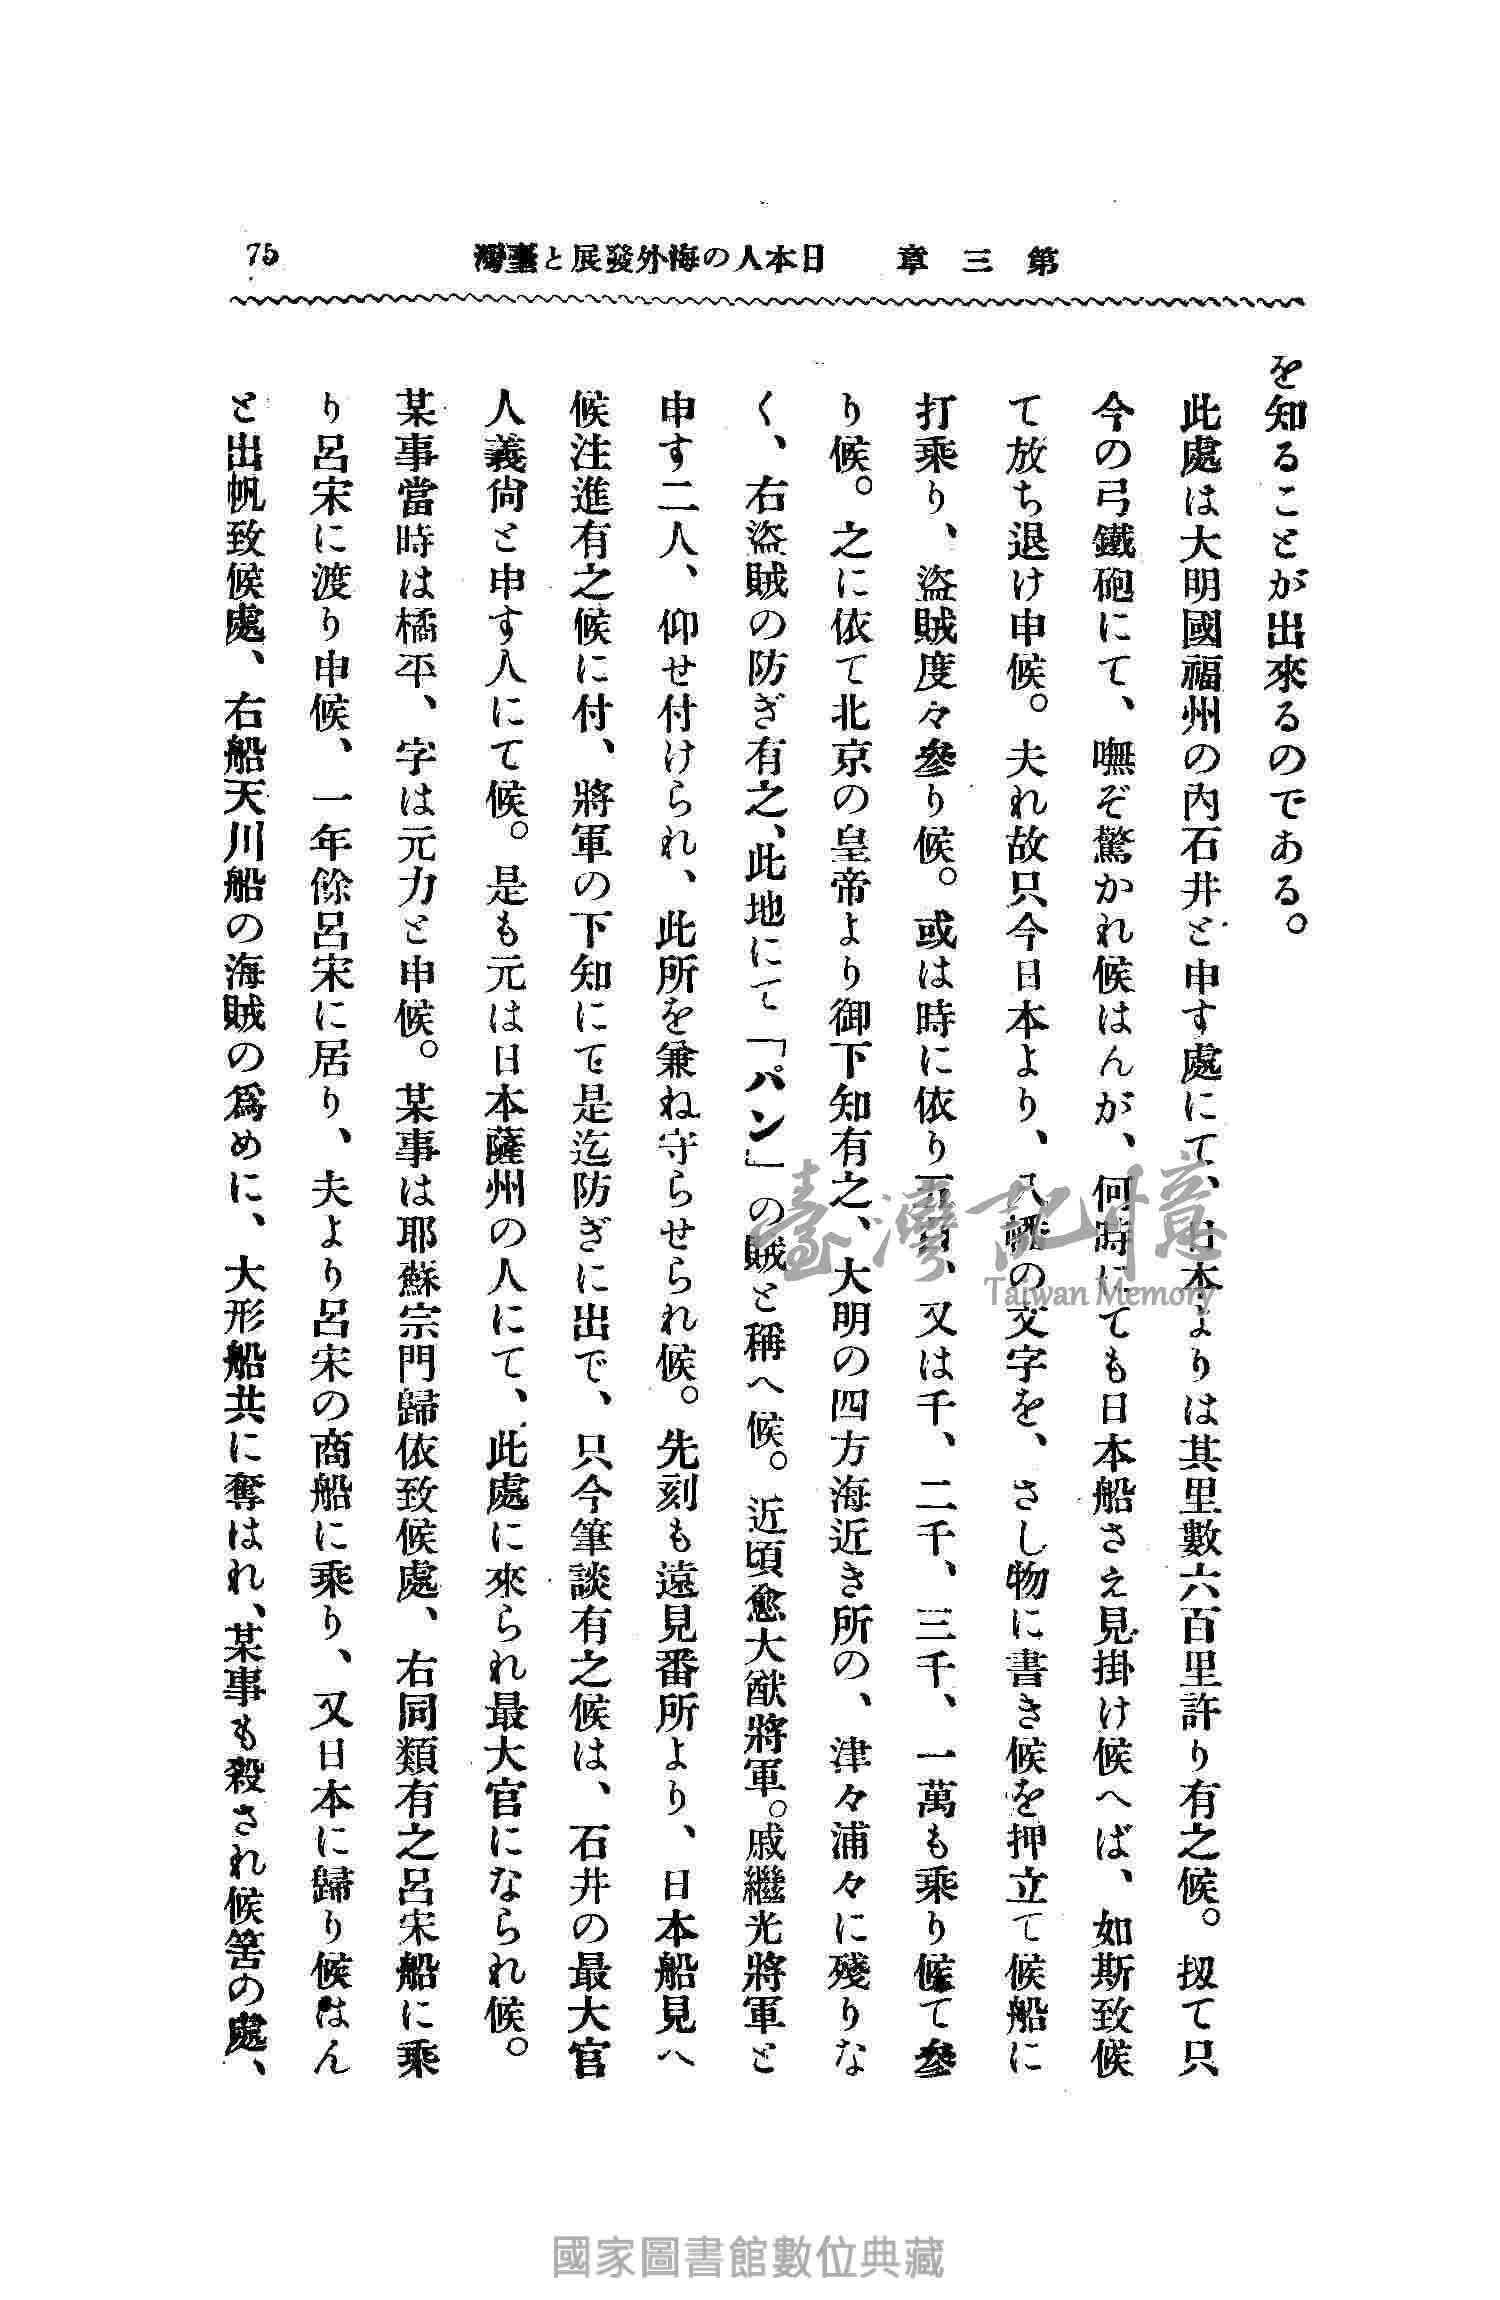 第三章　日本人の海外發展と臺灣
75
を知ることが出來るのである。
此處は大明國福州の內石井と申す處にて、日本よりは其里數六百里許り有之候。扨て只
今の弓鐵砲にて、嘸ぞ驚かれ候はんが、何時にても日本船さえ見掛け候へば、如斯致候
て放ち退け申候。夫れ故只今日本より、八幡の文字を、さし物に書き候を押立て候船に
打乘り、盜賊度々參り候。或は時に依り五百、又は千、二千、三千、一萬も乘り候て參
り候。之に依て北京の皇帝より御下知有之、大明の四方海近き所の、津々浦々に殘りな
く、右盜賊の防ぎ有之、此地にて「パン」の賊と稱へ候。近頃愈大猷將軍。戚繼光將軍と
申す二人、仰せ付けられ、此所を兼ね守らせられ候。先刻も遠見番所より、日本船見へ
候注進有之候に付、將軍の下知にて是迄防ぎに出で、只今筆談有之候は、石井の最大官
人義尙と申す人にて候。是も元は日本薩州の人にて、此處に來られ最大官になられ候。
某事當時は橘平、字は元力と申候。某事は耶蘇宗門歸依致候處、右同類有之呂宋船に乘
り呂宋に渡り申候、一年餘呂宋に居り、夫より呂宋の商船に乘り、又日本に歸り候はん
と出帆致候處、右船天川船の海賊の爲めに、大形船共に奪はれ、某事も殺され候筈の處、
臺灣記憶
Taiwan Memory
國家圖書館數位典藏